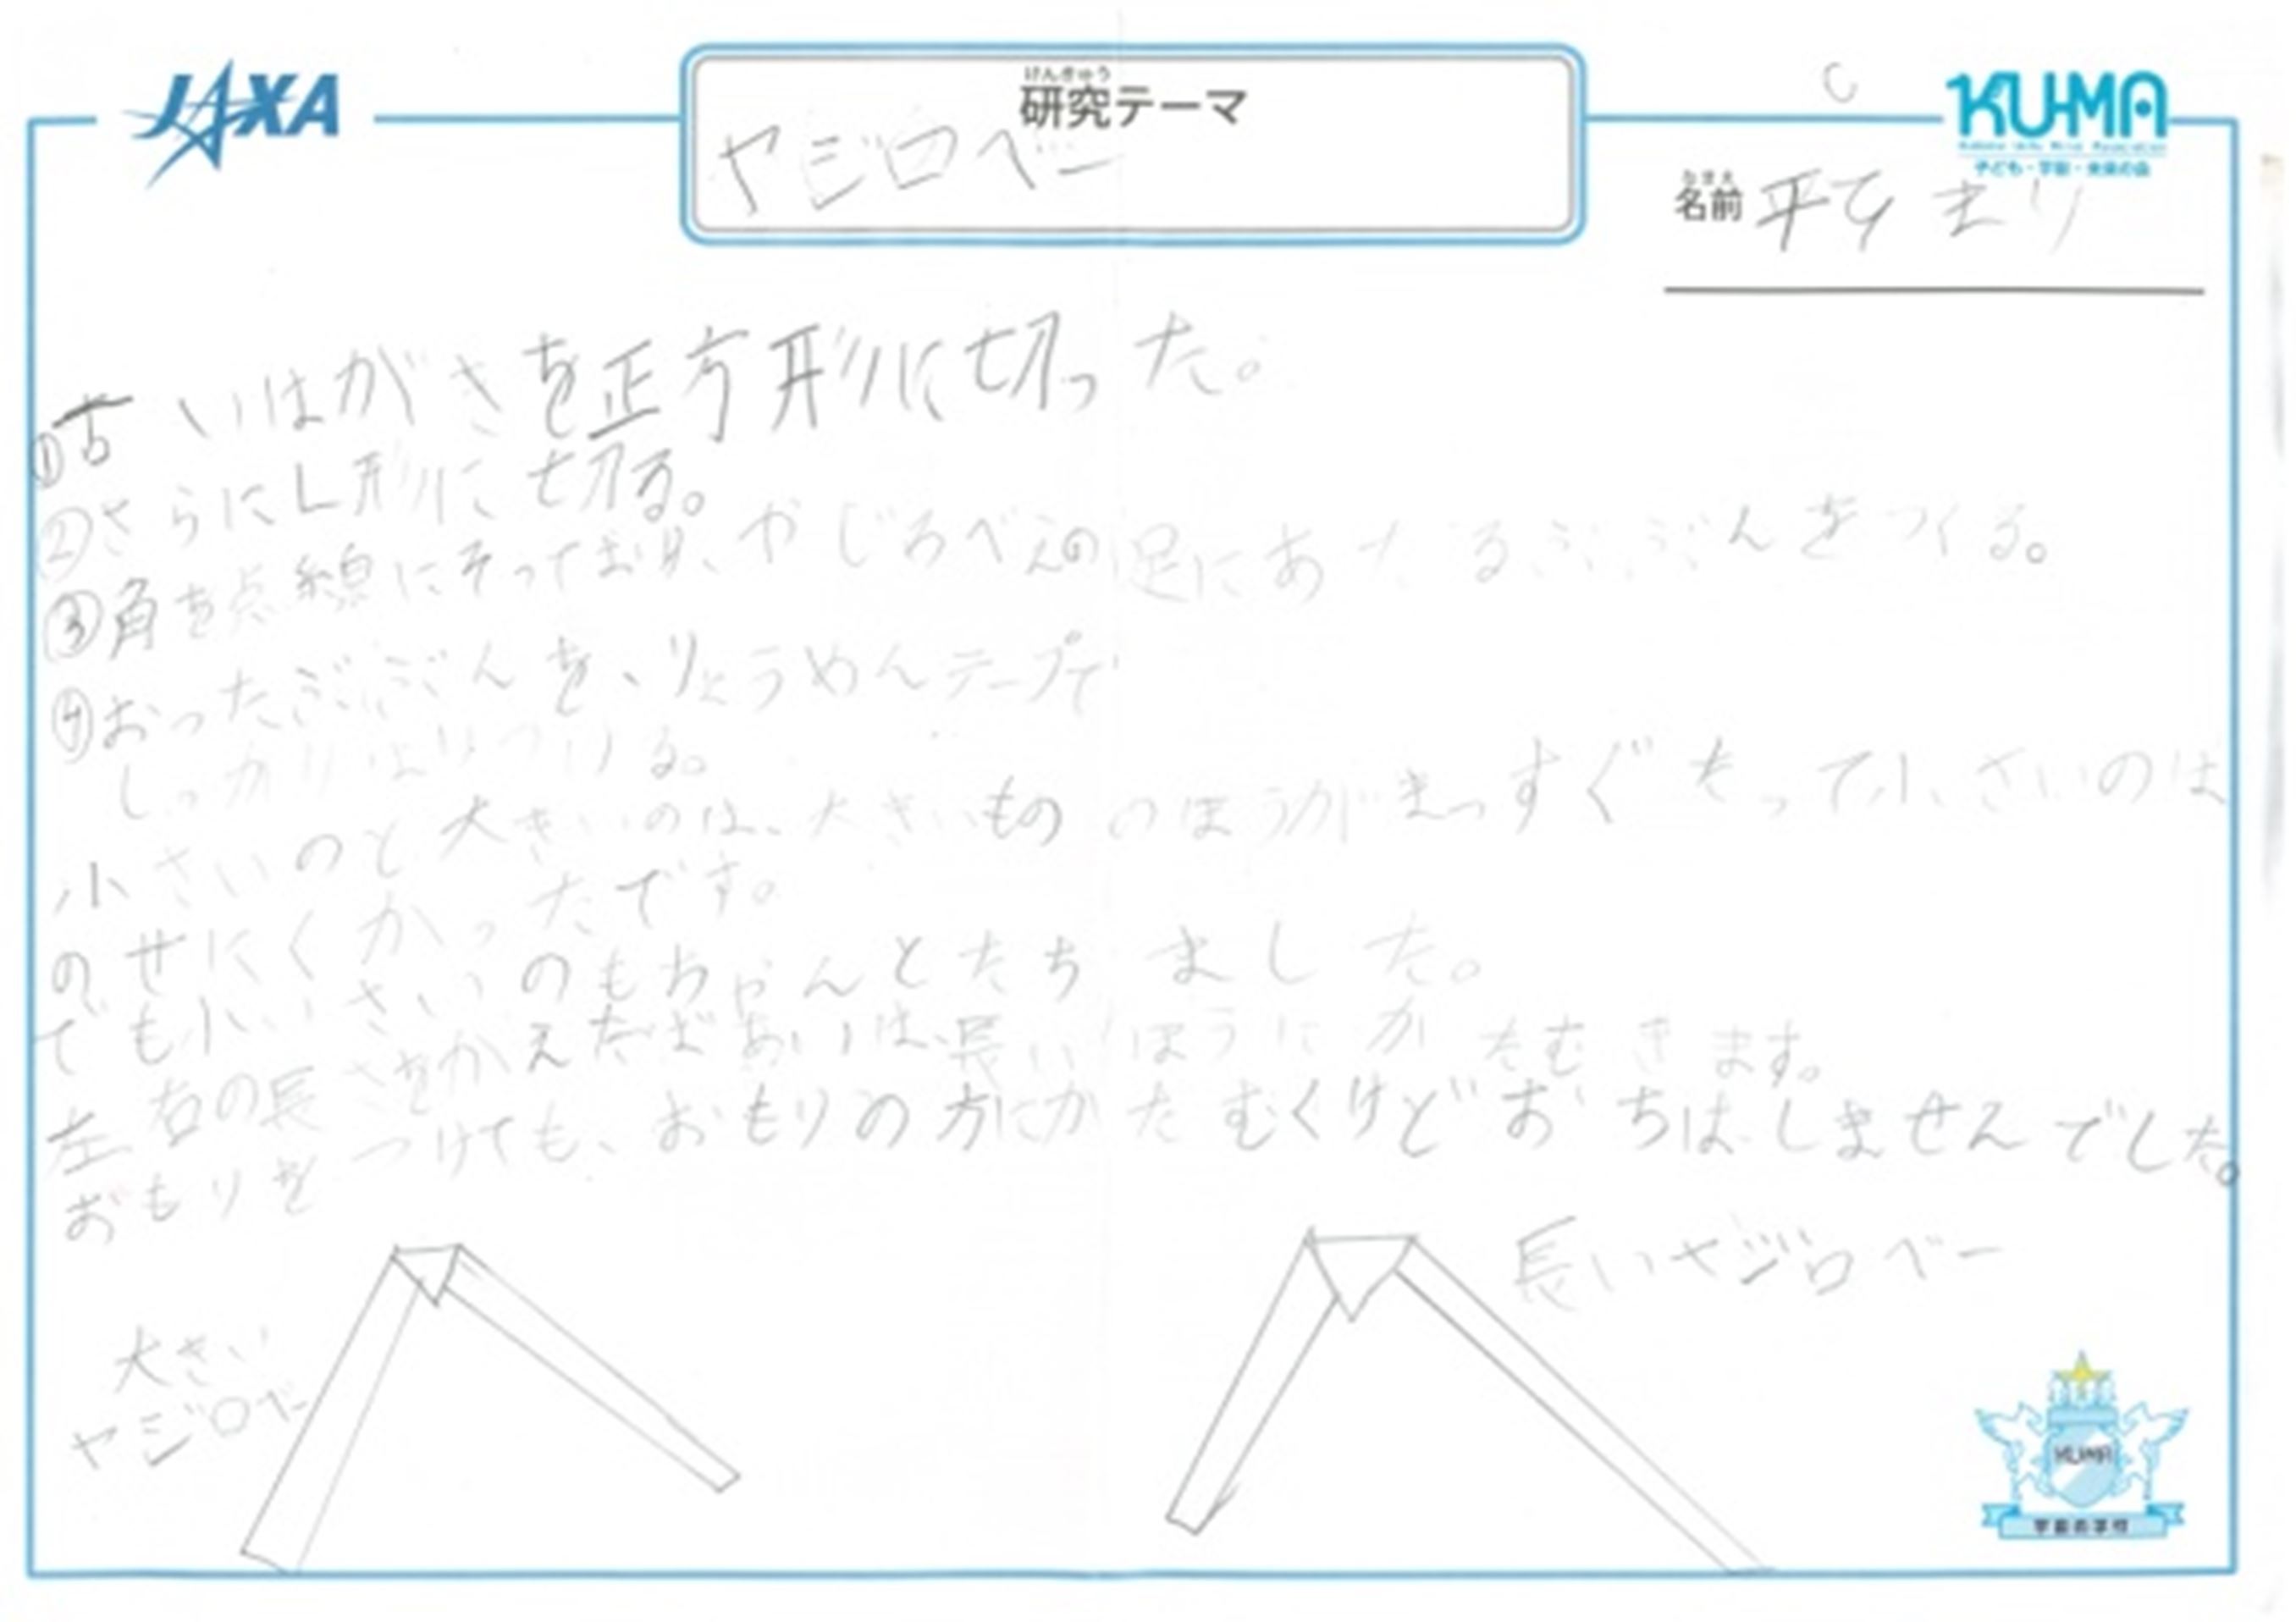 JAXA
けんきゅう
研究テーマ
ヤジロベー
C
KU-MA
子ども・宇宙・未来の会
なまえ
名前
①古いはがきを正方形に切った。
②さらにL形に切る。
③角を点線にそっており、やじろべえの足にあたるぶぶんをつくる。
④おったぶぶんを、りょうめんテープで
しっかりはりつける。
小さいのと大きいのは、大きいもののほうがまっすぐたって小さいのは
のせにくかったです。
でも小いさいのもちゃんとたちました。
左右の長さをかえたばあいは、長いほうにかたむきます。
おもりをつけても、おもりの方にかたむくけどおちはしませんでした。
長いヤジロベー
大きい
ヤジロベー
KUMA
宇宙の学校